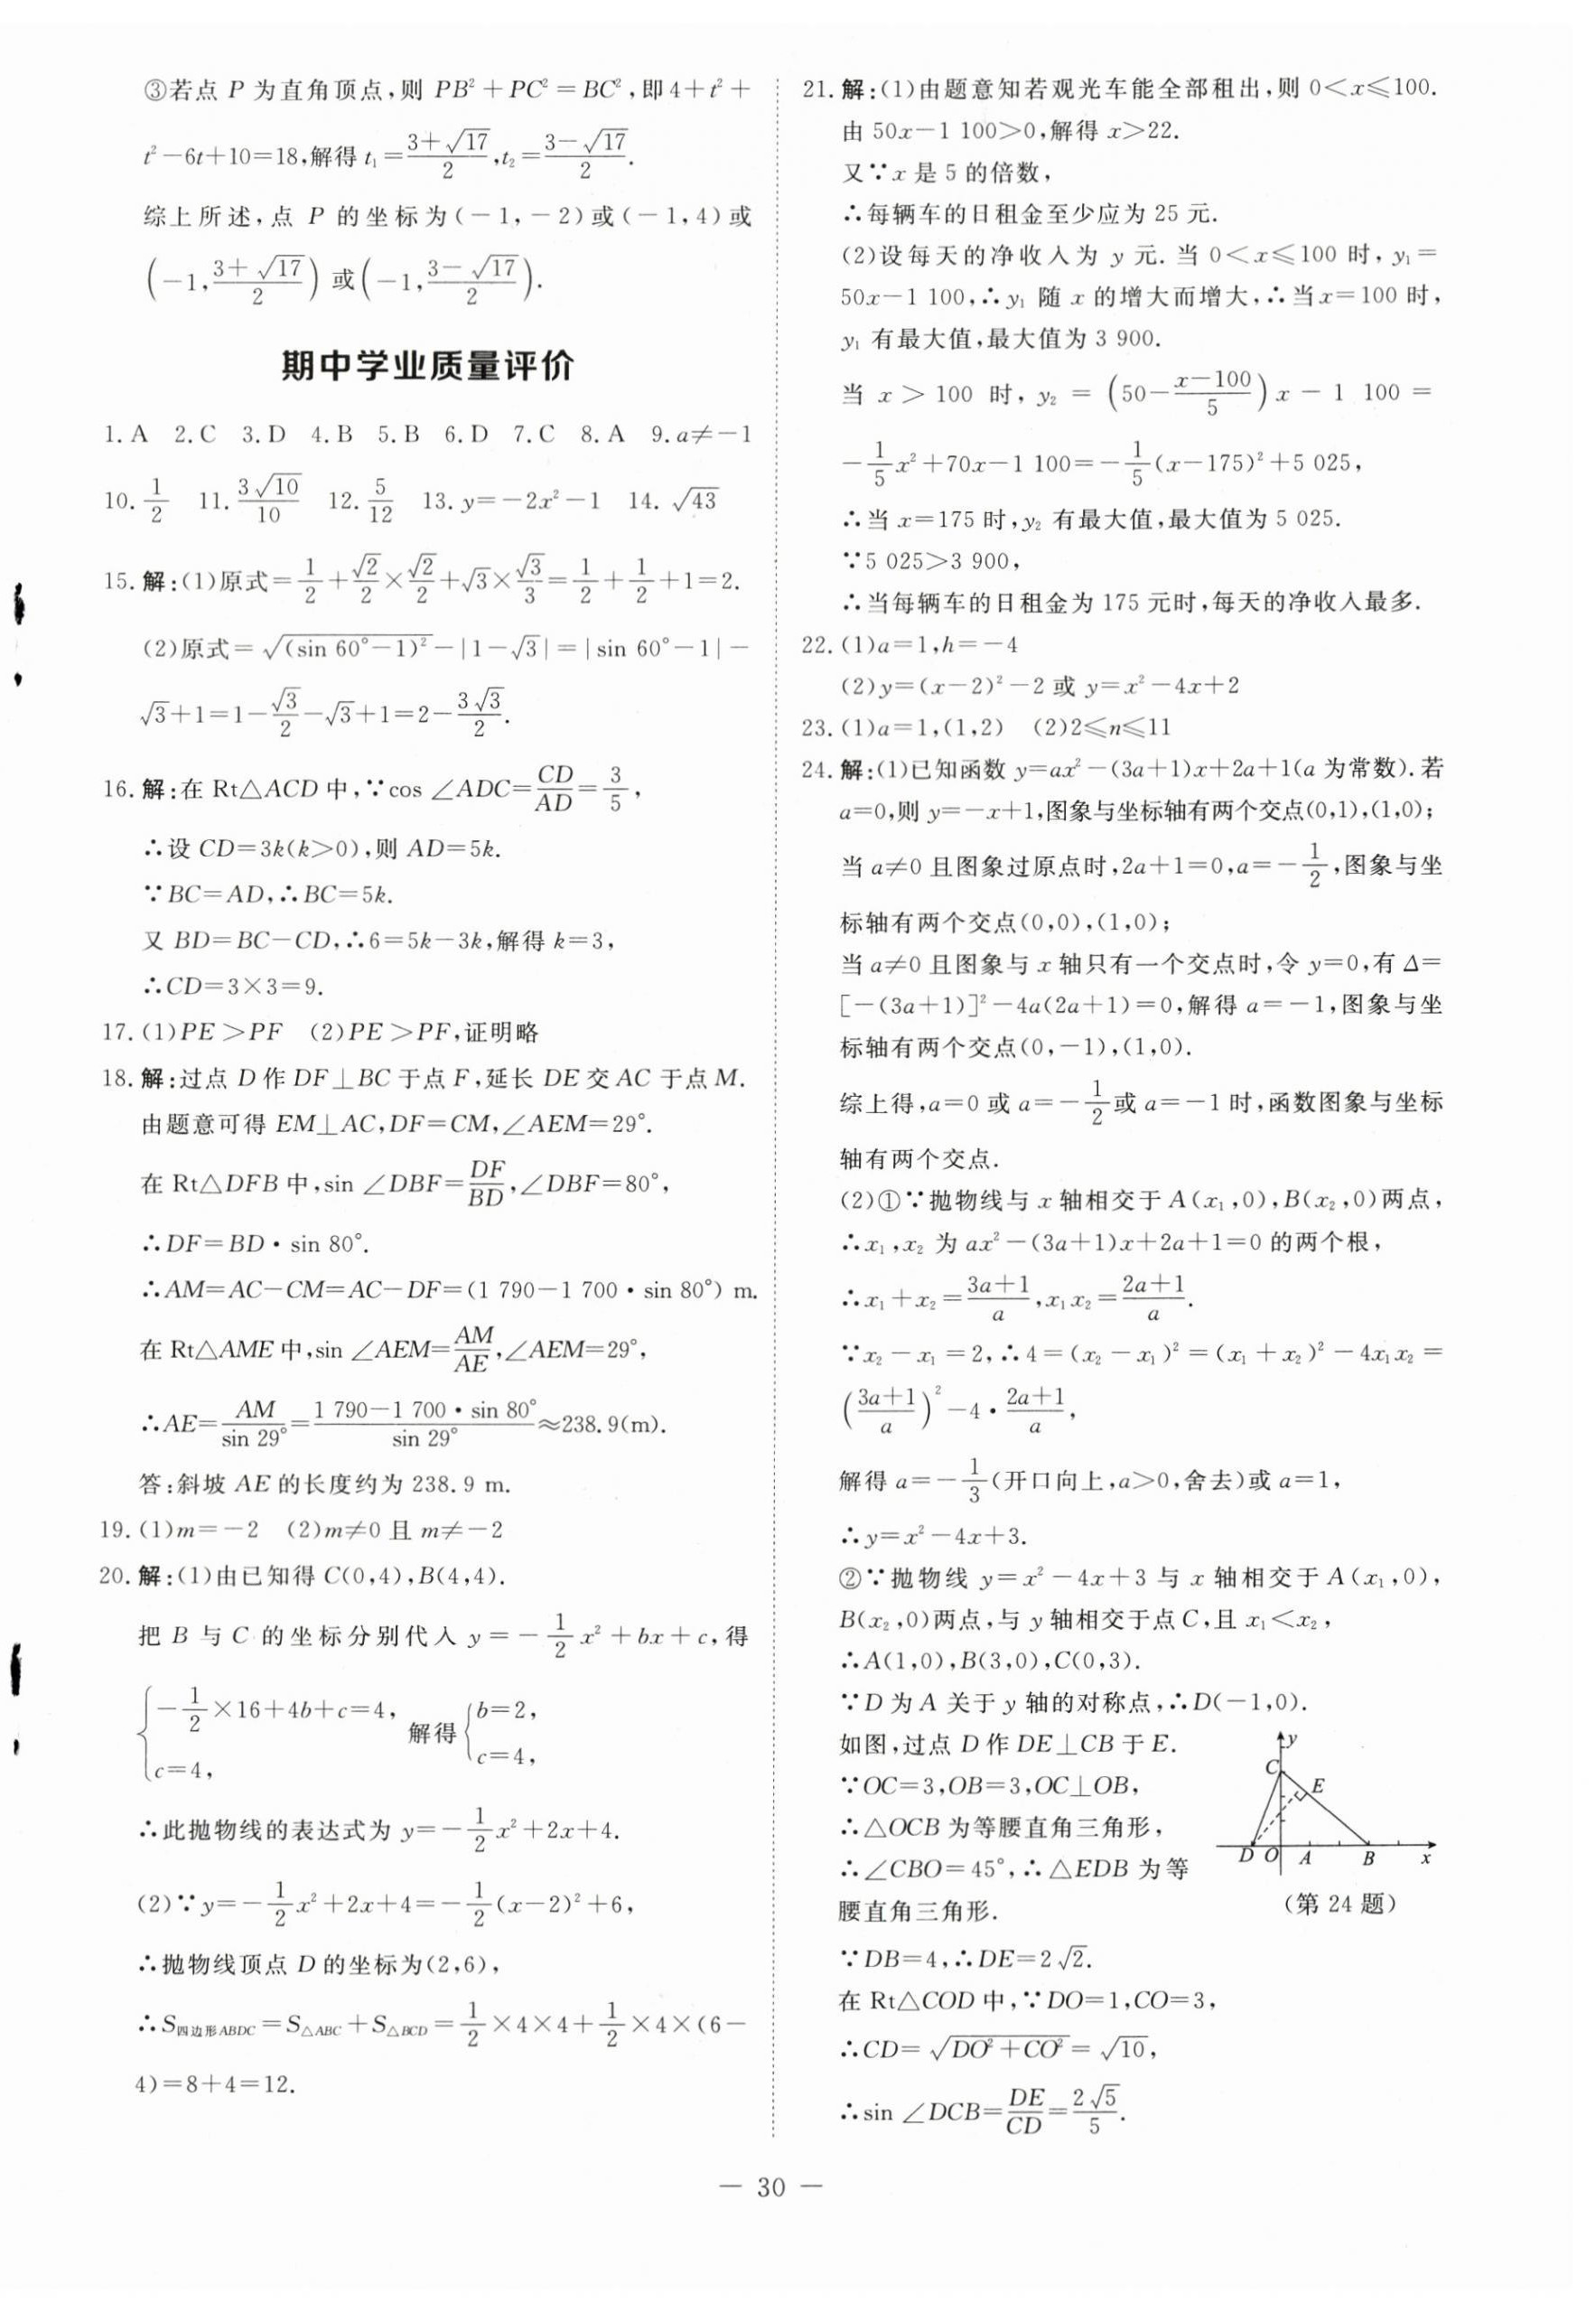 ③若点 P 为直角顶点,则 PB²+PC²=BC²,即 4+t²+
t²-6t+10=18,解得 t₁=(3+√17)/2,t₂=(3-√17)/2.
综上所述,点 P 的坐标为(-1,-2)或(-1,4)或
(-1,(3+√17)/2)或(-1,(3-√17)/2).
期中学业质量评价
1.A 2.C 3.D 4.B 5.B 6.D 7.C 8.A 9.a≠-1
10.1/2 11.3√10/10 12.5/12 13.y=-2x²-1 14.√43
15.解:(1)原式=1/2+√2/2×√2/2+√3×√3/3=1/2+1/2+1=2.
(2)原式=√((sin 60°-1)²)-|1-√3|=|sin 60°-1|-
√3+1=1-√3/2-√3+1=2-3√3/2.
16.解:在 Rt△ACD 中,∵cos ∠ADC=CD/AD=3/5,
∴设 CD=3k(k>0),则 AD=5k.
∵BC=AD,∴BC=5k.
又 BD=BC-CD,∴6=5k-3k,解得 k=3,
∴CD=3×3=9.
17.(1)PE>PF (2)PE>PF,证明略
18.解:过点 D 作 DF⊥BC 于点 F,延长 DE 交 AC 于点 M.
由题意可得 EM⊥AC,DF=CM,∠AEM=29°.
在 Rt△DFB 中,sin ∠DBF=DF/BD,∠DBF=80°,
∴DF=BD·sin 80°.
∴AM=AC-CM=AC-DF=(1 790-1 700·sin 80°) m.
在 Rt△AME 中,sin ∠AEM=AM/AE,∠AEM=29°,
∴AE=AM/sin 29°=(1 790-1 700·sin 80°)/sin 29°≈238.9(m).
答:斜坡 AE 的长度约为 238.9 m.
19.(1)m=-2 (2)m≠0 且 m≠-2
20.解:(1)由已知得 C(0,4),B(4,4).
把 B 与 C 的坐标分别代入 y=-1/2x²+bx+c,得
{-1/2×16+4b+c=4, c=4, 解得{b=2, c=4,
∴此抛物线的表达式为 y=-1/2x²+2x+4.
(2)∵y=-1/2x²+2x+4=-1/2(x-2)²+6,
∴抛物线顶点 D 的坐标为(2,6),
∴S四边形ABDC=S△ABC+S△BCD=1/2×4×4+1/2×4×(6-
4)=8+4=12.
21.解:(1)由题意知若观光车能全部租出,则 0<x≤100.
由 50x-1 100>0,解得 x>22.
又∵x 是 5 的倍数,
∴每辆车的日租金至少应为 25 元.
(2)设每天的净收入为 y 元.当 0<x≤100 时,y₁=
50x-1 100,∴y₁ 随 x 的增大而增大,∴当 x=100 时,
y₁ 有最大值,最大值为 3 900.
当 x>100 时,y₂=(50-(x-100)/5)x-1 100=
-1/5x²+70x-1 100=-1/5(x-175)²+5 025,
∴当 x=175 时,y₂ 有最大值,最大值为 5 025.
∵5 025>3 900,
∴当每辆车的日租金为 175 元时,每天的净收入最多.
22.(1)a=1,h=-4
(2)y=(x-2)²-2 或 y=x²-4x+2
23.(1)a=1,(1,2) (2)2≤n≤11
24.解:(1)已知函数 y=ax²-(3a+1)x+2a+1(a 为常数).若
a=0,则 y=-x+1,图象与坐标轴有两个交点(0,1),(1,0);
当 a≠0 且图象过原点时,2a+1=0,a=-1/2,图象与坐
标轴有两个交点(0,0),(1,0);
当 a≠0 且图象与 x 轴只有一个交点时,令 y=0,有 Δ=
[-(3a+1)]²-4a(2a+1)=0,解得 a=-1,图象与坐
标轴有两个交点(0,-1),(1,0).
综上得,a=0 或 a=-1/2或 a=-1 时,函数图象与坐标
轴有两个交点.
(2)①∵抛物线与 x 轴相交于 A(x₁,0),B(x₂,0)两点,
∴x₁,x₂ 为 ax²-(3a+1)x+2a+1=0 的两个根,
∴x₁+x₂=(3a+1)/a,x₁x₂=(2a+1)/a.
∵x₂-x₁=2,∴4=(x₂-x₁)²=(x₁+x₂)²-4x₁x₂=
((3a+1)/a)²-4·(2a+1)/a,
解得 a=-1/3(开口向上,a>0,舍去)或 a=1,
∴y=x²-4x+3.
②∵抛物线 y=x²-4x+3 与 x 轴相交于 A(x₁,0),
B(x₂,0)两点,与 y 轴相交于点 C,且 x₁<x₂,
∴A(1,0),B(3,0),C(0,3).
∵D 为 A 关于 y 轴的对称点,∴D(-1,0).
如图,过点 D 作 DE⊥CB 于 E.
∵OC=3,OB=3,OC⊥OB,
∴△OCB 为等腰直角三角形,
∴∠CBO=45°,∴△EDB 为等
腰直角三角形.
∵DB=4,∴DE=2√2.
在 Rt△COD 中,∵DO=1,CO=3,
∴CD=√(DO²+CO²)=√10,
∴sin ∠DCB=DE/CD=2√5/5.
y
C
E
D O A B x
(第 24 题)
— 30 —